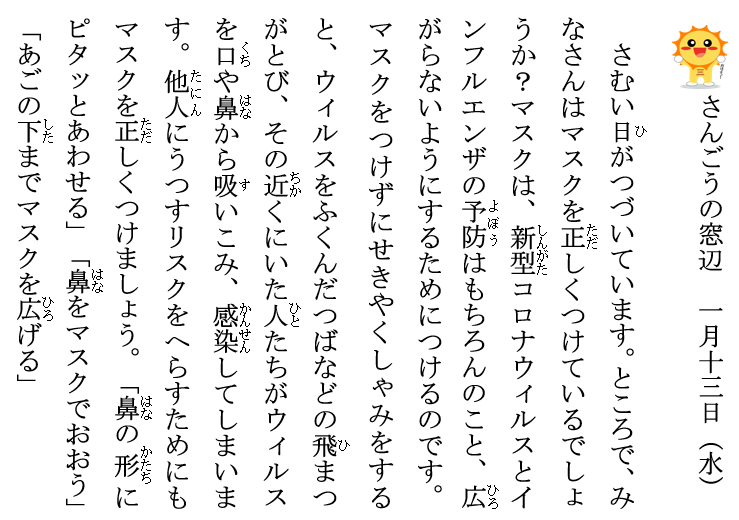 さんごうの窓辺　一月十三日（水）
　さむい日がつづいています。ところで、み
なさんはマスクを正しくつけているでしょ
うか？マスクは、新型コロナウィルスとイ
ンフルエンザの予防はもちろんのこと、広
がらないようにするためにつけるのです。
マスクをつけずにせきやくしゃみをする
と、ウィルスをふくんだつばなどの飛まつ
がとび、その近くにいた人たちがウィルス
を口や鼻から吸いこみ、感染してしまいま
す。他人にうつすリスクをへらすためにも
マスクを正しくつけましょう。「鼻の形に
ピタッとあわせる」「鼻をマスクでおおう」
「あごの下までマスクを広げる」